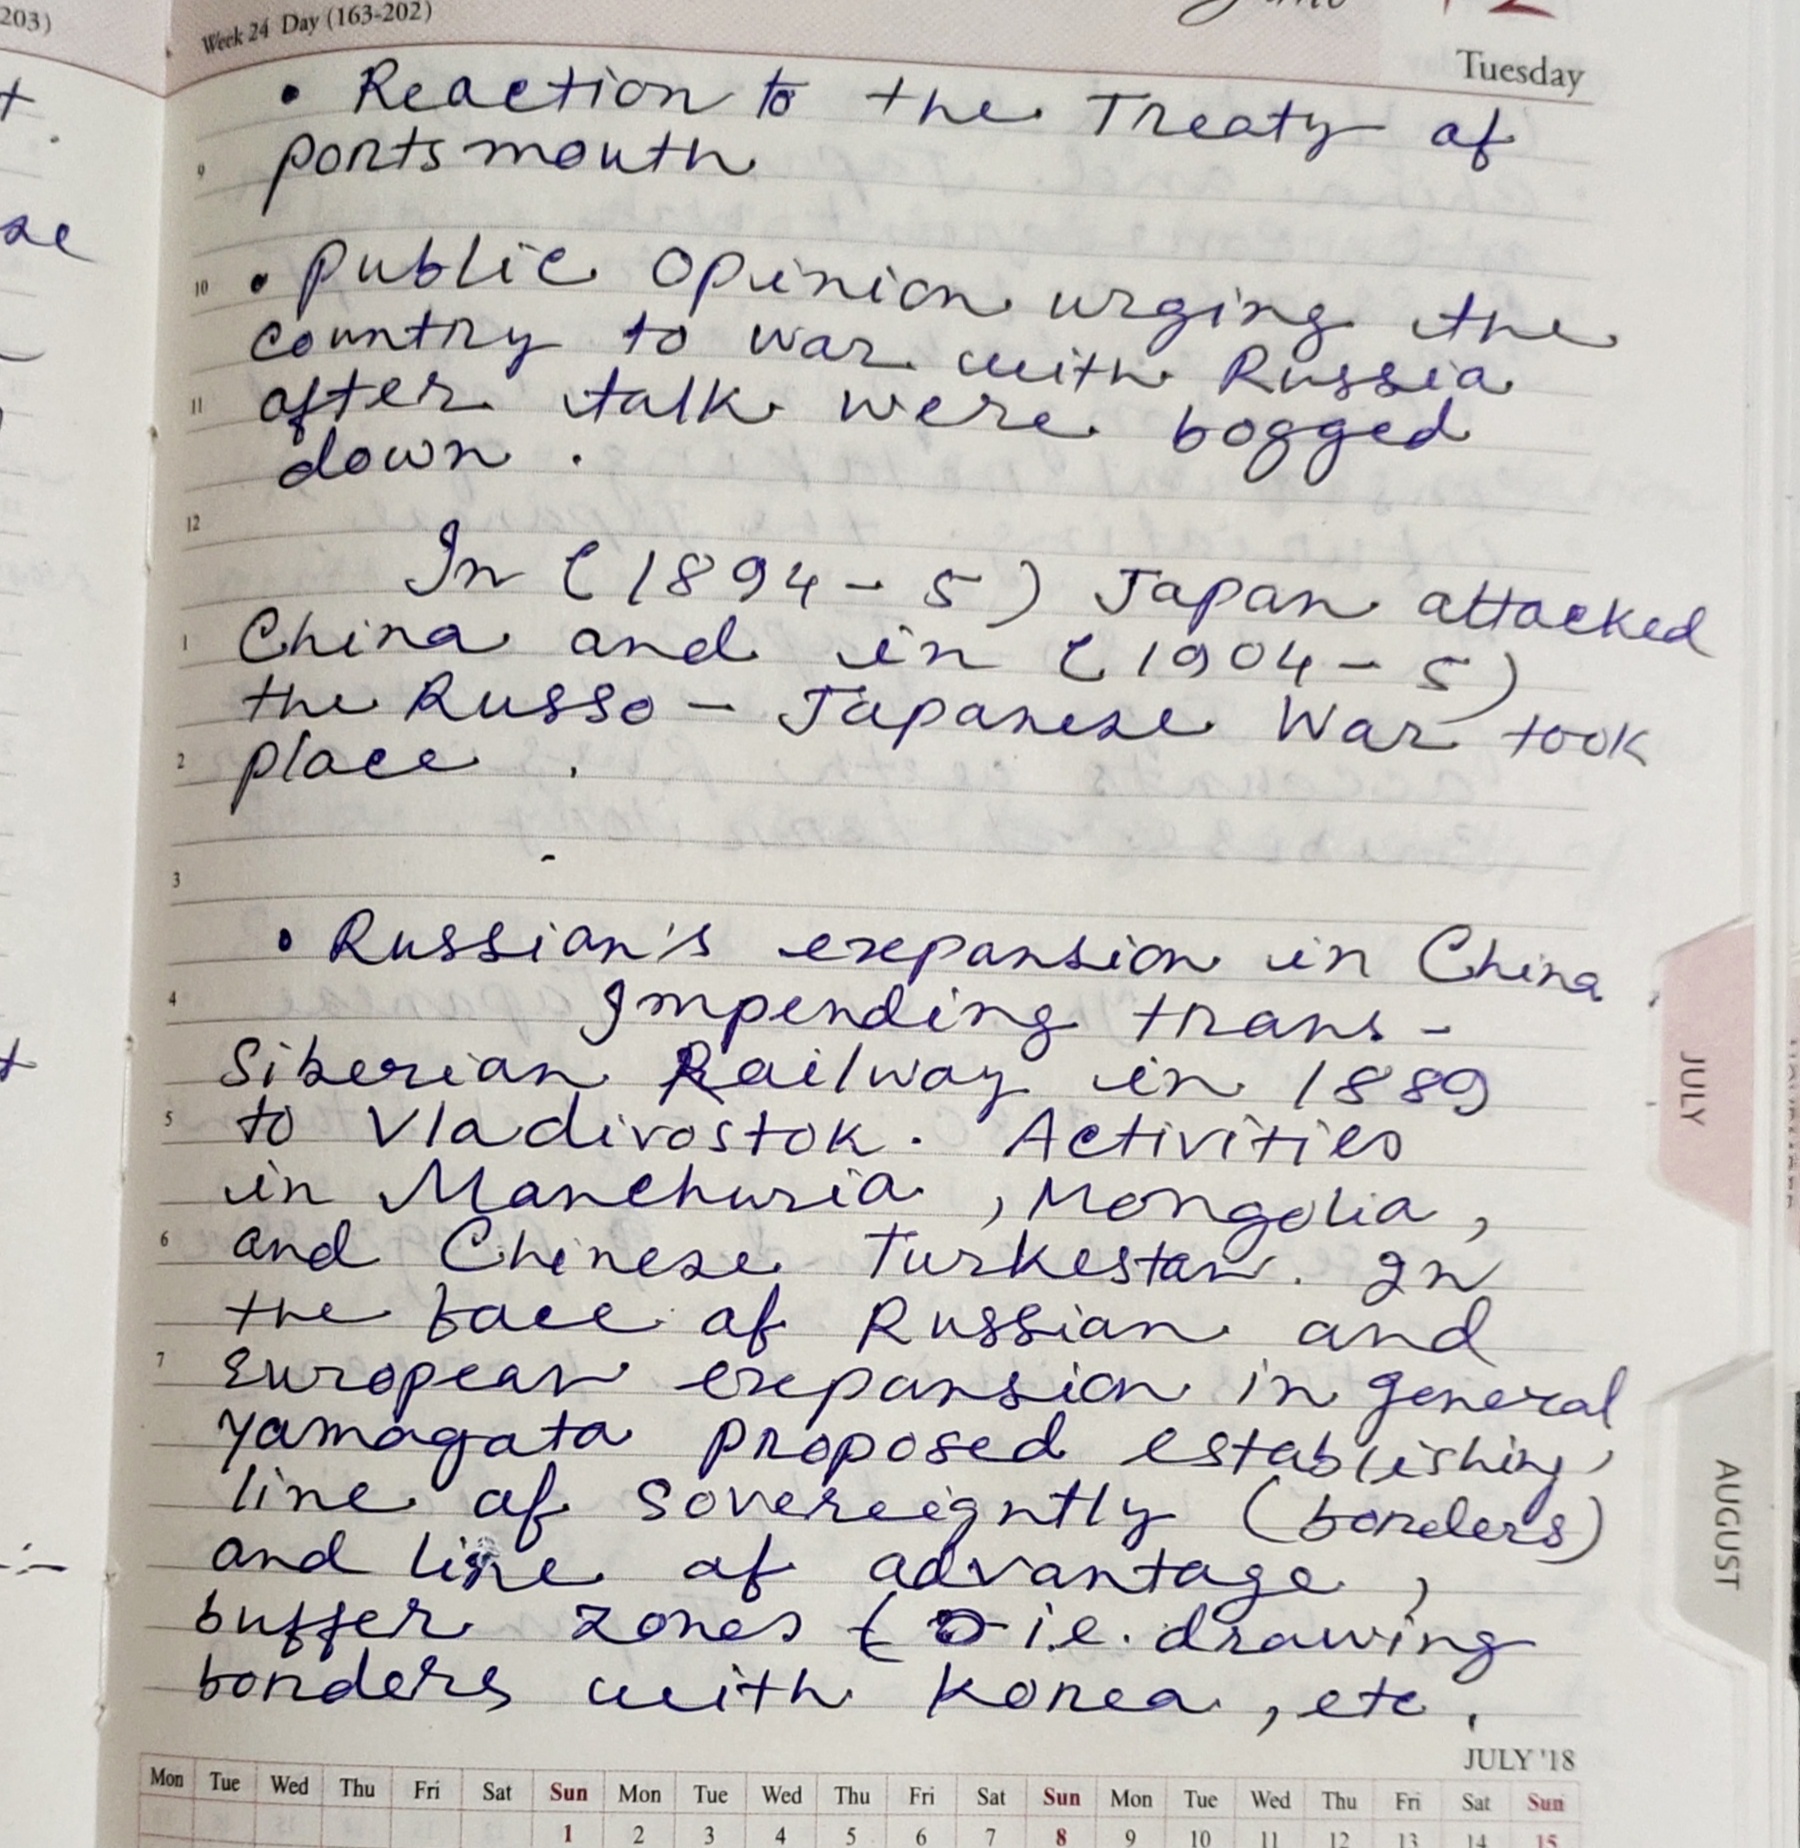 203)
Week 24 Day (163-202)
Tuesday
• Reaction to the Treaty of
9
portsmouth
10
• public opinion urging the
country to war with Russia
11
after talk were bogged
down.
12
In (1894-5) Japan attacked
1
China and in (1904-5)
the Russo-Japanese War took
2
place.
3
• Russian's expansion in China
4
Impending trans-
Siberian Railway in 1889
5
to Vladivostok. Activities
in Manchuria, Mongolia,
6
and Chinese Turkestan. In
the face of Russian and
7
European expansion in general
Yamagata proposed establishing
line of Sovereigntly (borders)
and line of advantage,
buffer zones ( i.e. drawing
borders with Korea, etc.
JULY
AUGUST
JULY '18
Mon Tue Wed Thu Fri Sat Sun Mon Tue Wed Thu Fri Sat Sun Mon Tue Wed Thu Fri Sat Sun
1 2 3 4 5 6 7 8 9 10 11 12 13 14 15